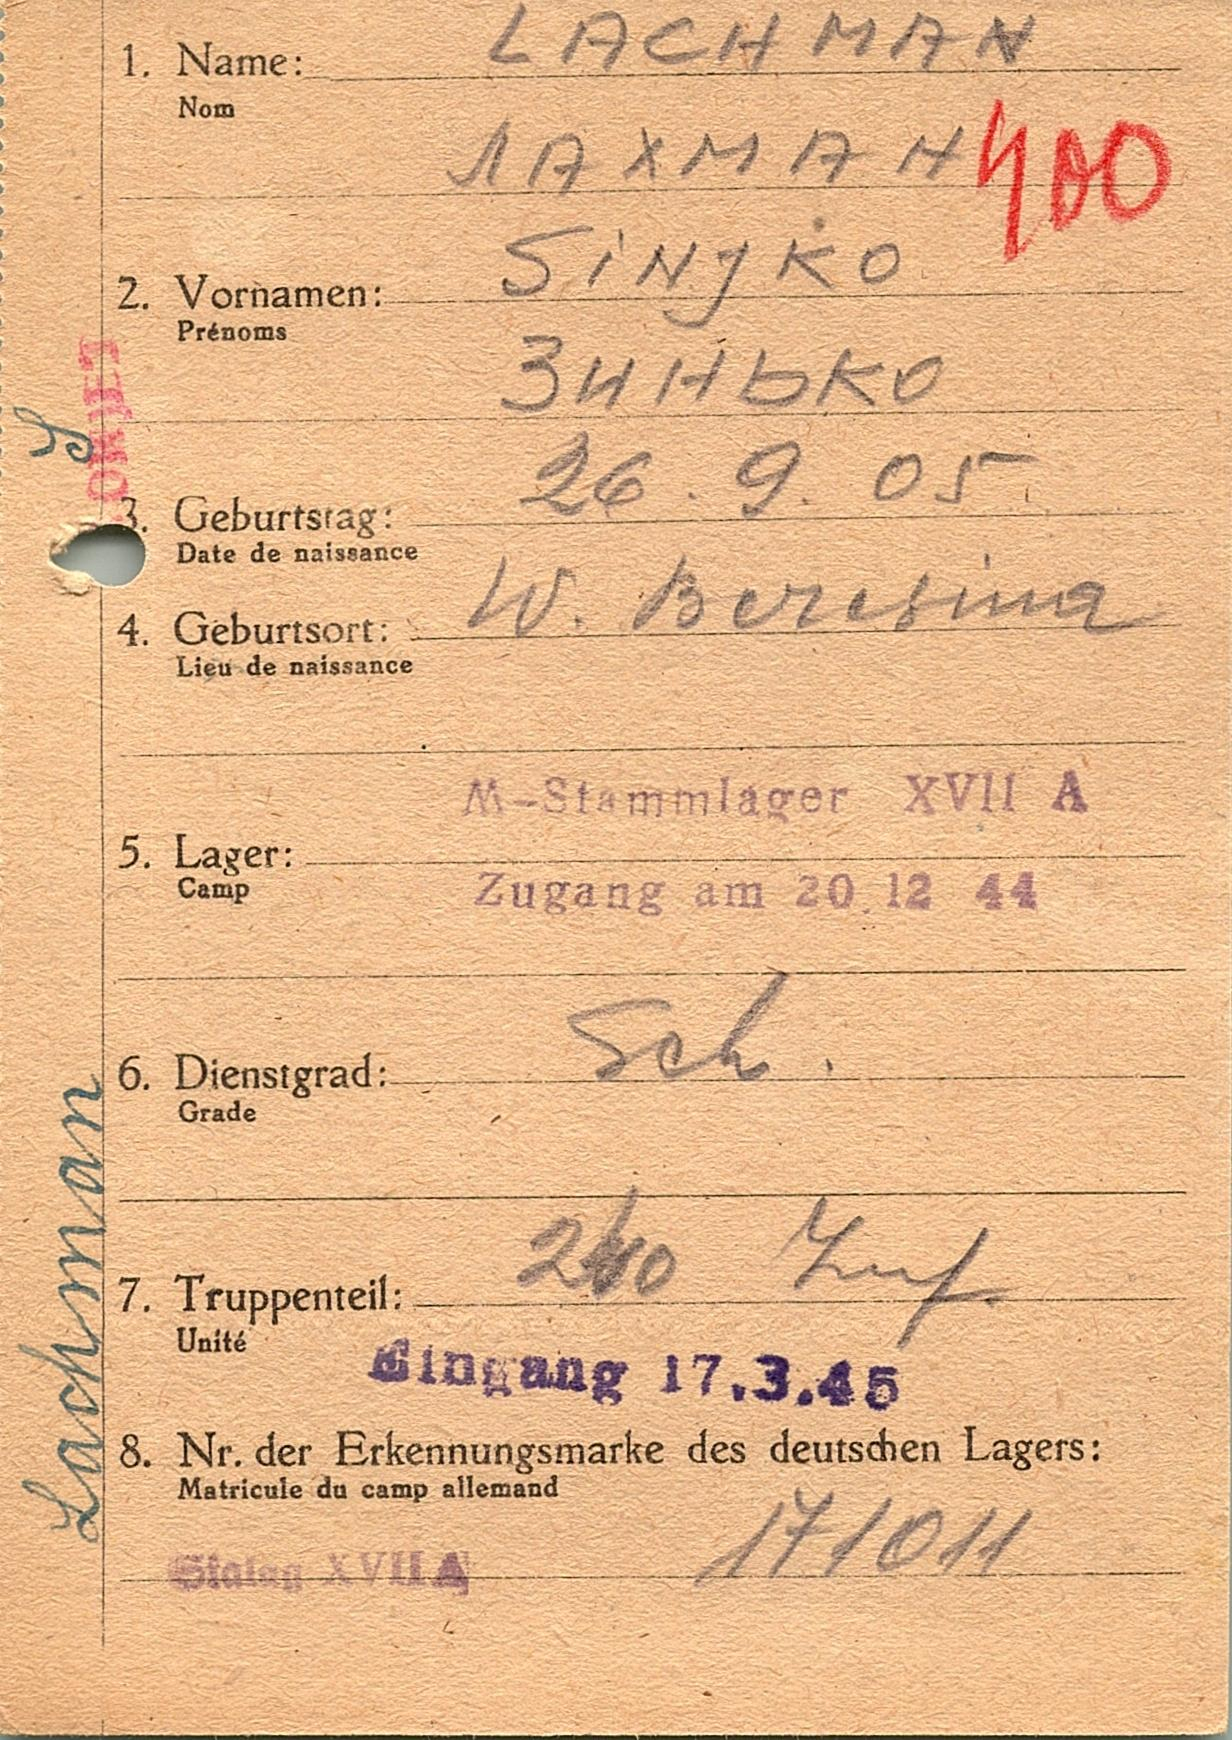 1. Name: LACHMAN
Nom
ЛАХМАН 400
2. Vornamen: SiNjKO
Prénoms
ЗИНЬКО
3. Geburtstag: 26. 9. 05
Date de naissance
4. Geburtsort: W. Beresina
Lieu de naissance
M-Stammlager XVII A
5. Lager:
Camp
Zugang am 20.12 44
6. Dienstgrad: Sch.
Grade
7. Truppenteil: Inf.
Unité
Eingang 17.3.45
8. Nr. der Erkennungsmarke des deutschen Lagers:
Matricule du camp allemand
171011
Stalag XVII A
Lachman